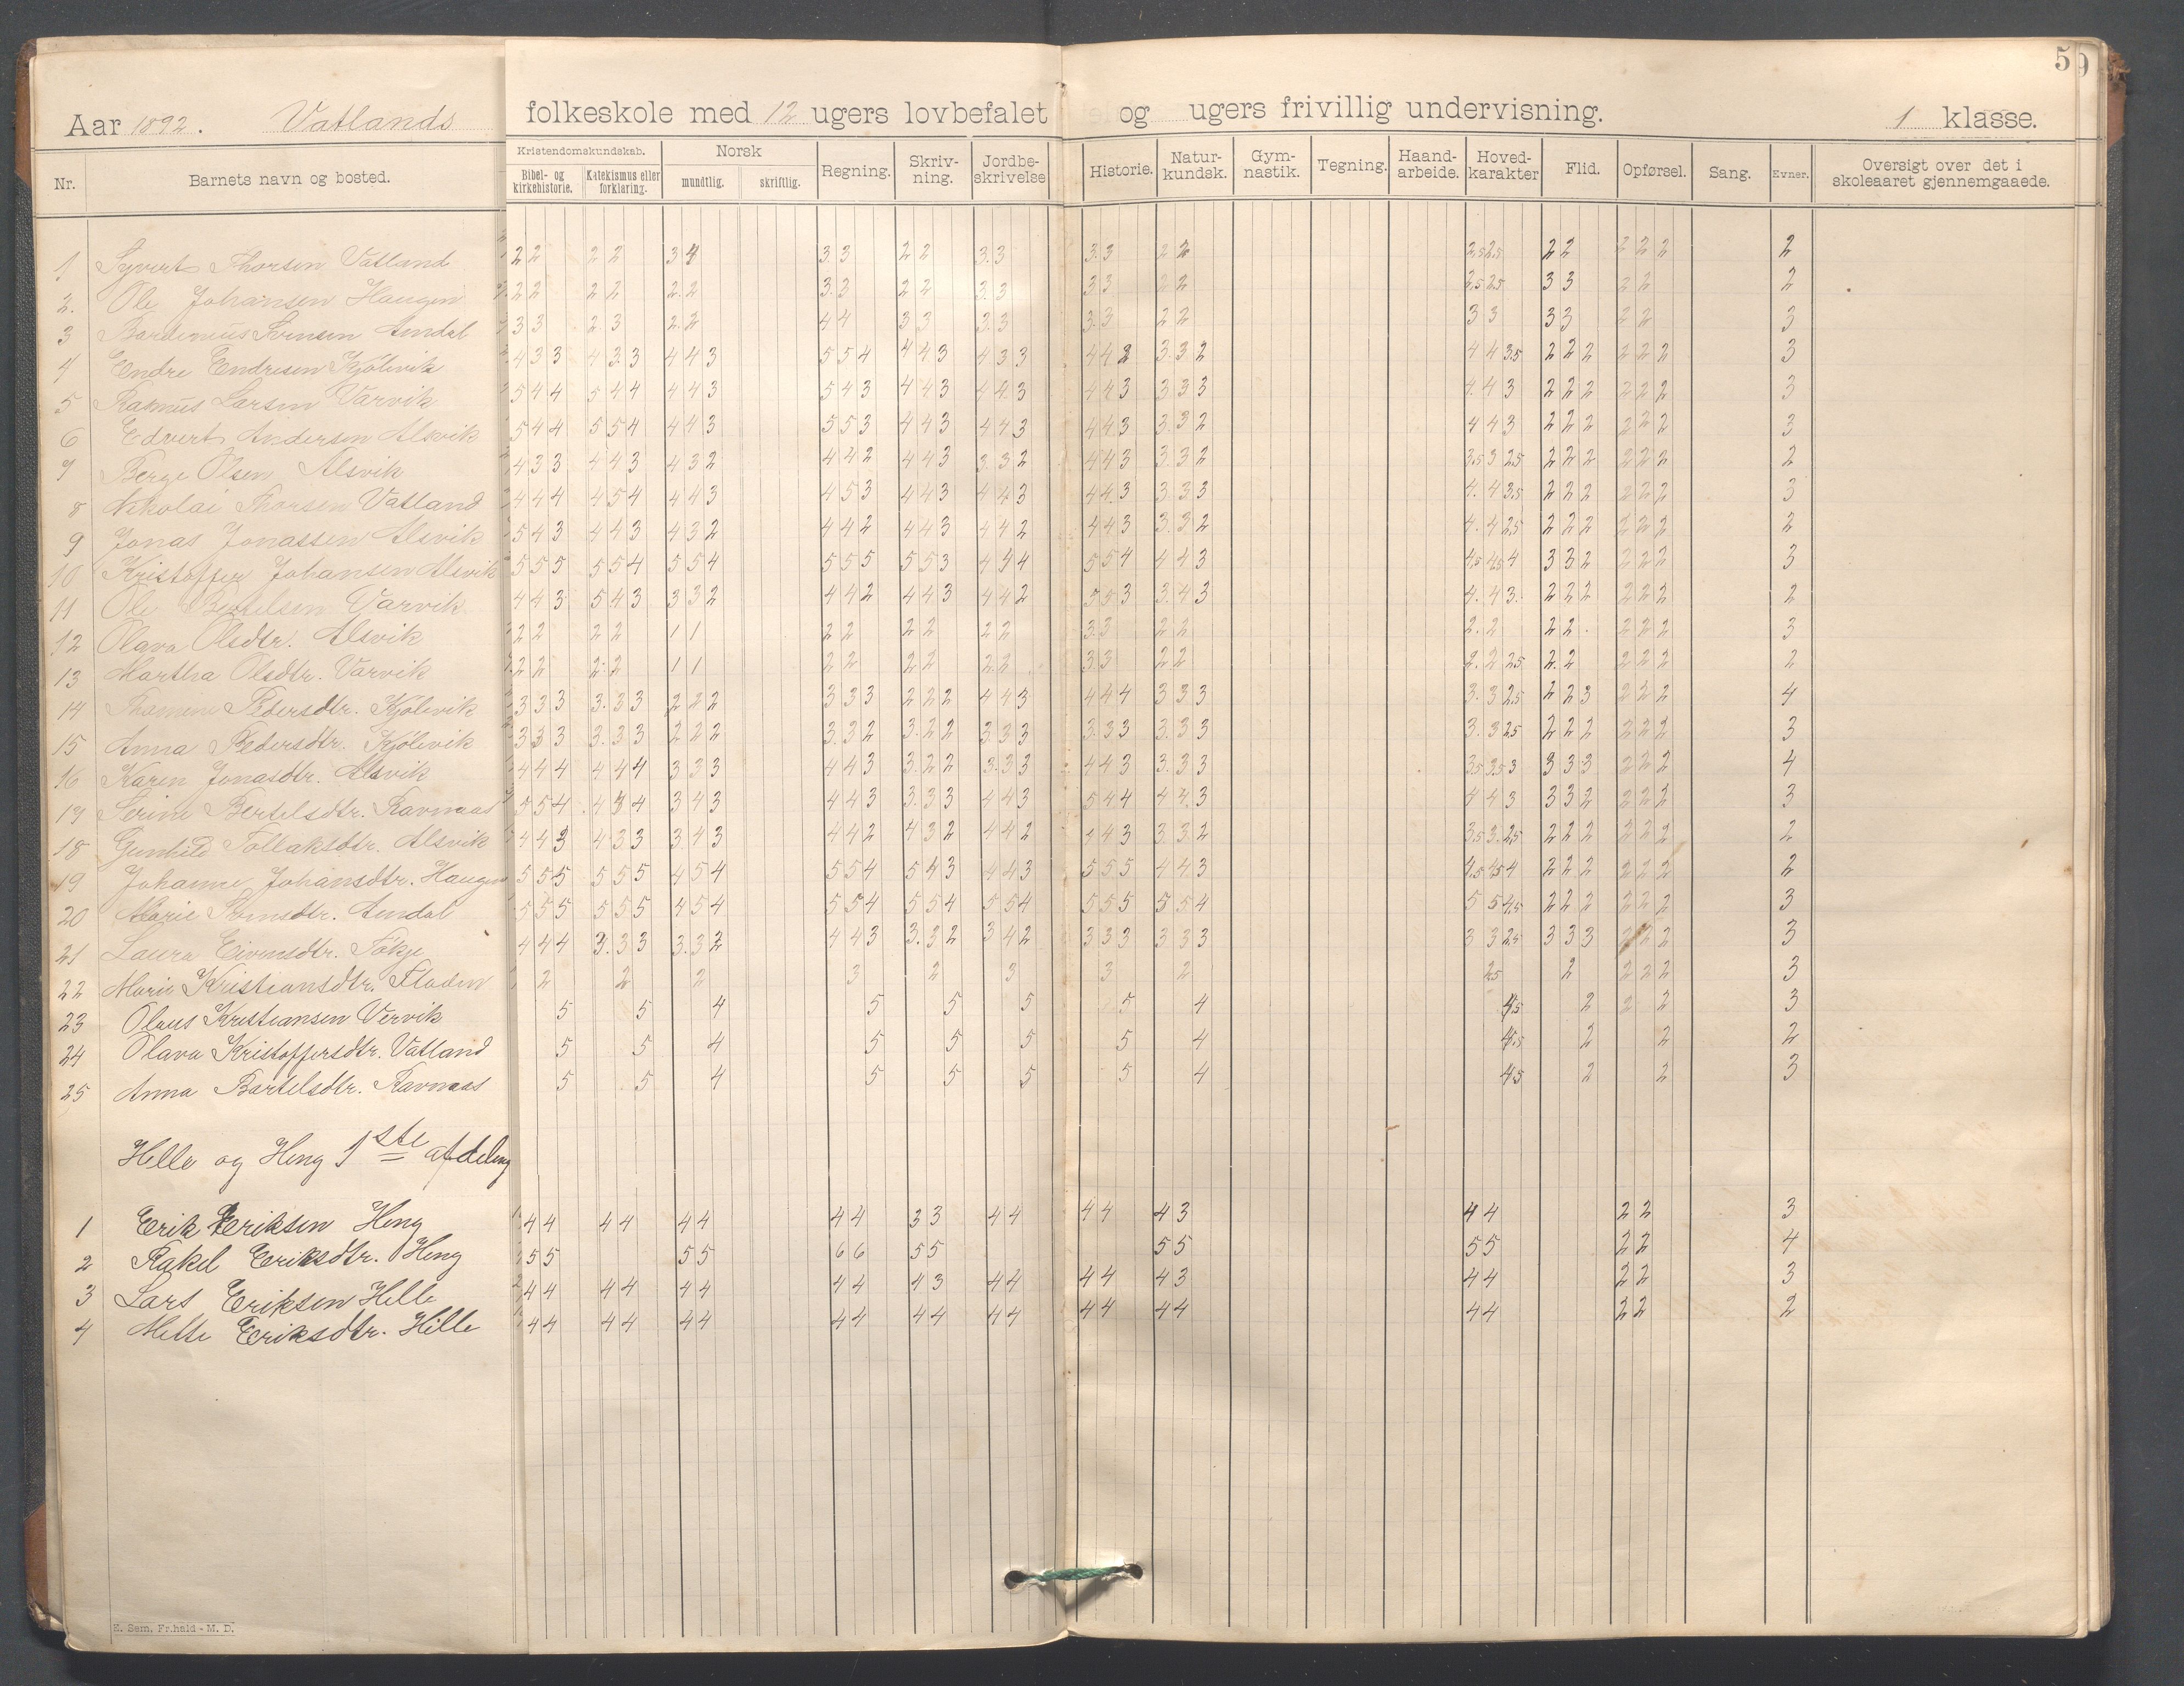 5 9
Aar 1892. Vatlands folkeskole med 12 ugers lovbefalet og ugers frivillig undervisning. 1 klasse.
Nr. Barnets navn og bosted. Kristendomskundskab. Bibel- og kirkehistorie. Katekismus eller forklaring. Norsk mundtlig. skriftlig. Regning. Skrivning. Jordbeskrivelse Historie. Naturkundsk. Gymnastik. Tegning. Haandarbeide. Hovedkarakter Flid. Opførsel. Sang. Evner. Oversigt over det i skoleaaret gjennemgaaede.
1 Syvert Thorsen Vatland 2 2 2 2 3 3 3 2 2 3.3 3.3 2 2 2,5 2,5 2 2 2 2 2 2
2. Ole Johansen Haugen 2 2 2 2 2.2 3.3 2 2 3.3 3 3 2 2 2,5 2,5 3 3 2 2 2
3 Amdal 3 3 2.3 2.2 4 4 3 3 3.3 3.3 2 2 3 3 3 3 2 2 3
4 Endre Endresen Kjölevik 4 3 3 4 3.3 4 4 3 5 5 4 4 4 3 4 3 3 4 4 2 3.3 2 4 4 3,5 2 2 2 2 2 2 3
5 Rasmus Larsen Varvik 5 4 4 5 4 4 4 4 3 5 4 3 4 4 3 4 4.3 4 4 3 3 3 3 4.4 3 2 2 2 2 2 2 3
6 Edvert Andersen Alsvik 5 4 4 5 5 4 4 4 3 5 5 3 4 4 3 4 4 3 4 4.3 3.3 2 4 4 3 2 2 2 2 2 2 3
7 Berge Olsen Alsvik 4 3 3 4 4 3 4 3 2 4 4 2 4 4 3 3.3 2 4 4 3 3.3 2 3,5 3 2,5 2 2 2 2 2 2 2
8 Nikolai Thorsen Vatland 4 4 4 4 5 4 4 4 3 4 5 3 4 4 3 4 4 3 4 4.3 3.3 3 4.4 3,5 2 2 2 2 2 2 3
9 Jonas Jonassen Alsvik 5 4 3 4 4 3 4 3 2 4 4 2 4 4 3 4 4 2 4 4 3 3.3 2 4.4 2,5 2 2 2 2 2 2 2
10 Kristoffer Johansen Alsvik 5 5 5 5 5 4 5 5 4 5 5 5 5 5 3 4 4 4 5 5 4 4 4 3 4,5 4,5 4 3 3 2 2 2 2 3
11 Ole Bertelsen Varvik 4 4 3 5 4 3 3 3 2 4 4 2 4 4 3 4 4 2 5 5 3 3.4 3 4.4 3. 2 2 2 2 2 2 2
12 Olava Olsdtr. Alsvik 2 2 2 2 1 1 2 2 2 2 2 2 3.3 2 2 2.2 2 2. 2 2 2 3
13 Martha Olsdtr. Varvik 2 2 2.2 1 1 2 2 2 2 2.2 3 3 2 2 2.2 2,5 2.2 2 2 2 2
14 Pedersdtr. Kjölevik 3 3 3 3.3 3 2 2 2 3 3 3 2 2 2 4 4 3 4 4 4 3 3 3 3.3 2,5 2 2 3 2 2 2 4
15 Anna Pedersdtr. Kjölevik 3 3 3 3.3 3 2 2 2 3.3 2 3.2 2 3.3 3 3.3 3 3.3 3 3.3 2,5 2 2 2 2 2 2 3
16 Karen Jonasdtr. Alsvik 4 4 4 4 4 4 3 3 3 4 4 3 3.2 2 3.3 3 4 4 3 3.3 3 3,5 3,5 3 3 3 3 2 2 2 4
17 Serine Bertelsdtr. Ravnaas 5 5 4 4 4 4 3 4 3 4 4 3 3.3 3 4 4 3 5 4 4 4 4.3 4 4 3 3 3 2 2 2 2 3
18 Gunhild Tollaksdtr. Alsvik 4 4 3 4 3 3 3 4 3 4 4 2 4 3 2 4 4 2 4 4 3 3.3 2 3,5 3. 2,5 2 2 2 2 2 2 2
19 Johanne Johansdtr. Haugen 5 5 5 5 5 5 4 5 4 5 5 4 5 4 3 4 4 3 5 5 5 4 4 3 4,5 4,5 4 2 2 2 2 2 2 2
20 Marie Amdal 5 5 5 5 5 5 4 5 4 5 5 4 5 5 4 5 5 4 5 5 5 5 5 4 5 5 4,5 2 2 2 2 2 2 3
21 Laura Eivensdtr. Tökje 4 4 4 3.3 3 3.3 2 4 4 3 3.3 2 3 4 2 3 3 3 3 3 3 3 3 2,5 3 3 3 2 2 2 3
22 Marie Kristiansdtr. Floden 2 2 2 3 2 3 3 2 2,5 2 2 2 2 3
23 Olaus Kristiansen Vervik 5 5 4 5 5 5 5 4 4,5 2 2 2 3
24 Olava Kristoffersdtr. Vatland 5 5 4 5 5 5 5 4 4,5 2 2 2
25 Anna Bartelsdtr. Ravnaas 5 5 4 5 5 5 5 4 4,5 2 2 3
Helle og Heng 1ste afdeling
1 Erik Eriksen Heng 4 4 4 4 4 4 4 4 3 3 4 4 4 4 4 3 4 4 2 2 3
2 Rakel Eriksdtr. Heng 5 5 5 5 6 6 5 5 5 5 5 5 2 2 4
3 Lars Eriksen Helle 4 4 4 4 4 4 4 4 4 3 4 4 4 4 4 3 4 4 2 2 3
4 Mette Eriksdtr. Hille 4 4 4 4 4 4 4 4 4 4 4 4 4 4 4 4 4 4 2 2 2
E. Sem, Fr.hald - M. D.